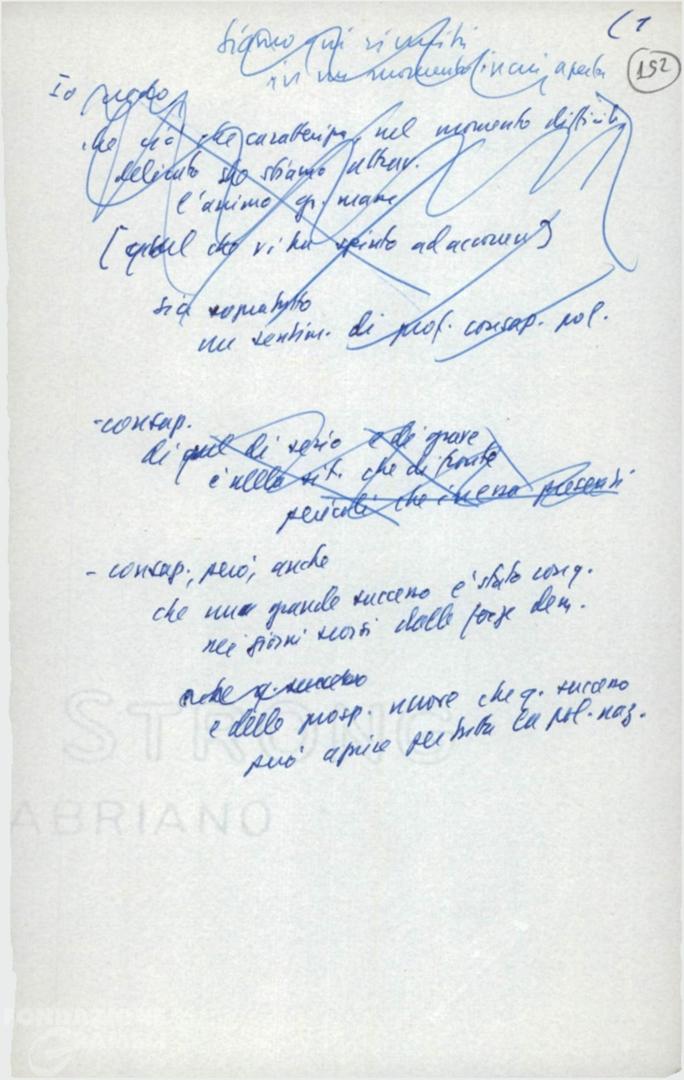 (1
152
Siamo qui riuniti
in un momento in cui, aperta
Io credo
che ciò che caratterizza, nel momento difficile,
delicato che stiamo attrav.
l'animo
[quel che vi ha spinto ad accorrere]
sia sopratutto
un sentim. di prof. consap. pol.
- consap.
di quel di serio e di grave
è nella sit. che di fronte
pericoli che presenti
- consap., però, anche
che una grande successo è stato conq.
nei giorni scorsi dalle forze dem.
che q. successo
e delle prosp. nuove che q. successo
può aprire per tutta la pol. naz.
STRONG
FABRIANO
FONDAZIONE
GRAMSCI